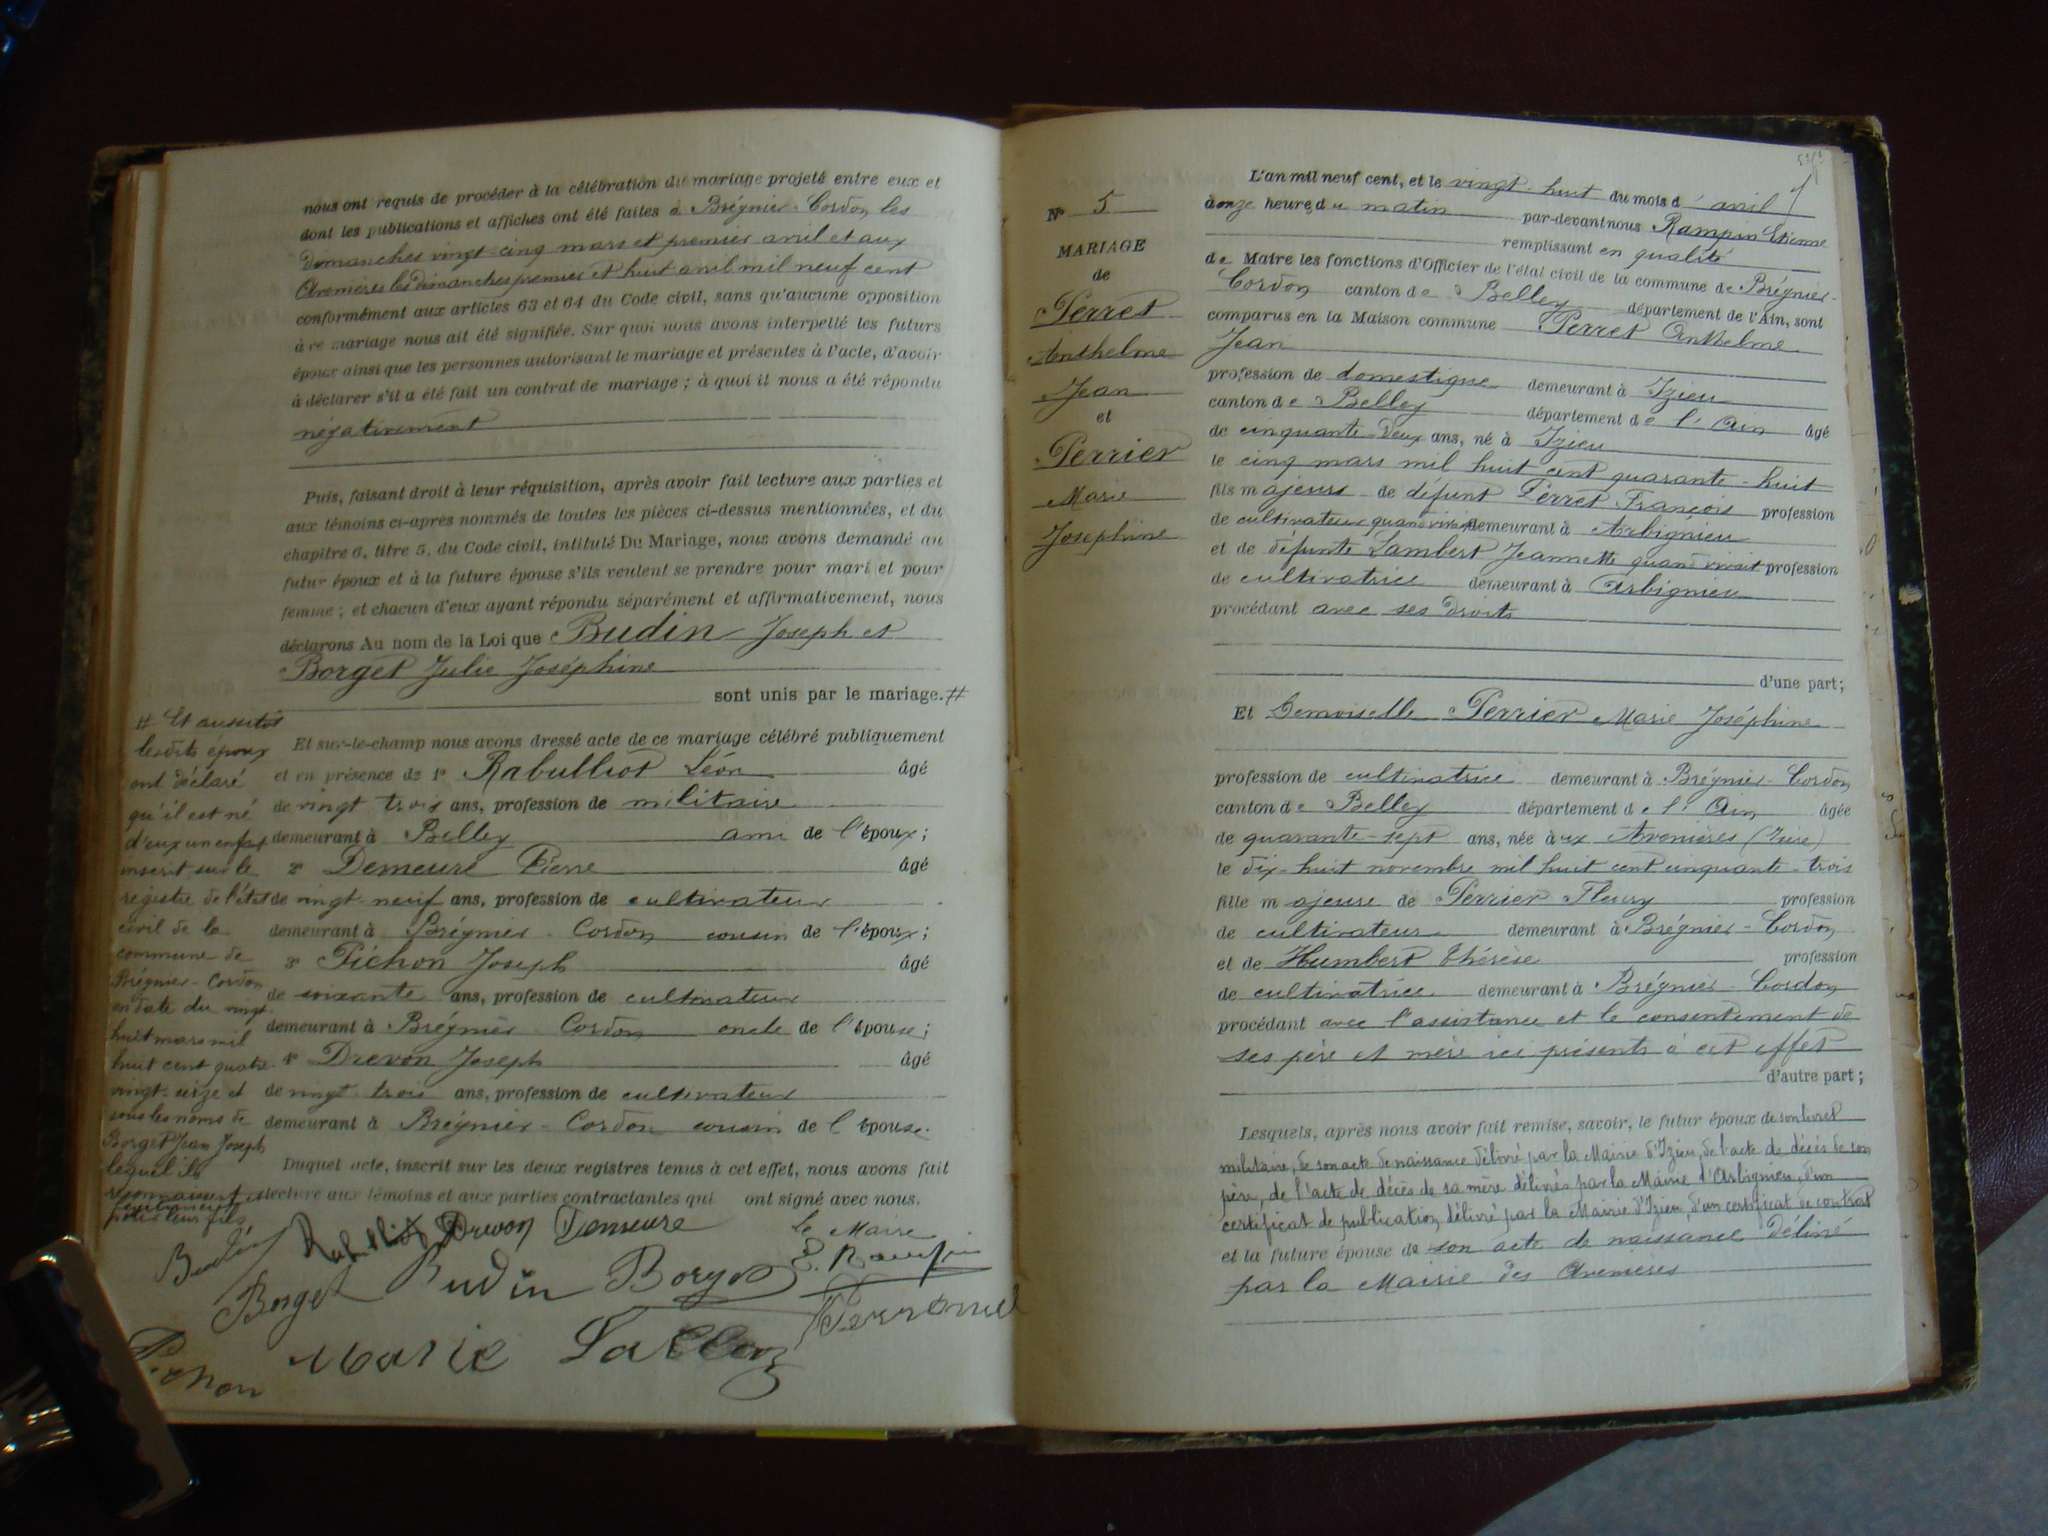 nous ont requis de procéder à la célébration du mariage projeté entre eux et
dont les publications et affiches ont été faites à Brégnier-Cordon les
dimanches vingt-cinq mars et premier avril et aux
Avenières les dimanches premier et huit avril mil neuf cent
conformément aux articles 63 et 64 du Code civil, sans qu'aucune opposition
à ce mariage nous ait été signifiée. Sur quoi nous avons interpellé les futurs
époux ainsi que les personnes autorisant le mariage et présentes à l'acte, d'avoir
à déclarer s'il a été fait un contrat de mariage ; à quoi il nous a été répondu
négativement
Puis, faisant droit à leur réquisition, après avoir fait lecture aux parties et
aux témoins ci-après nommés de toutes les pièces ci-dessus mentionnées, et du
chapitre 6, titre 5, du Code civil, intitulé Du Mariage, nous avons demandé au
futur époux et à la future épouse s'ils veulent se prendre pour mari et pour
femme ; et chacun d'eux ayant répondu séparément et affirmativement, nous
déclarons Au nom de la Loi que Budin Joseph et
Borget Julie Joséphine
sont unis par le mariage. #
Et sur-le-champ nous avons dressé acte de ce mariage célébré publiquement
et en présence de 1° Rabulliot Léon âgé
de vingt trois ans, profession de militaire
demeurant à Belley ami de l'époux ;
2° Demeure Pierre âgé
de vingt-neuf ans, profession de cultivateur
demeurant à Brégnier-Cordon cousin de l'époux ;
3° Pichon Joseph âgé
de soixante ans, profession de cultivateur
demeurant à Brégnier-Cordon oncle de l'épouse ;
4° Drevon Joseph âgé
de vingt-trois ans, profession de cultivateur
demeurant à Brégnier-Cordon cousin de l'épouse.
Duquel acte, inscrit sur les deux registres tenus à cet effet, nous avons fait
lecture aux témoins et aux parties contractantes qui ont signé avec nous.
# Et aussitôt
lesdits époux
ont déclaré
qu'il est né
d'eux un enfant
inscrit sur le
registre de l'état
civil de la
commune de
Brégnier-Cordon
en date du vingt
huit mars mil
huit cent quatre
vingt-seize et
sous les noms de
Borget Jean Joseph
lequel ils
reconnaissent
pour leur fils
Drevon Demeure Le Maire
Borget Budin Borget E. Rampin
Pichon Marie
N° 5
MARIAGE
de
Perret
Anthelme
Jean
et
Perrier
Marie
Joséphine
L'an mil neuf cent, et le vingt-huit du mois d'avril
à onze heures du matin par-devant nous Rampin Etienne
remplissant en qualité
de Maire les fonctions d'Officier de l'état civil de la commune de Brégnier-
Cordon canton de Belley département de l'Ain, sont
comparus en la Maison commune Perret Anthelme
Jean
profession de domestique demeurant à Izieu
canton de Belley département de l'Ain âgé
de cinquante-deux ans, né à Izieu
le cinq mars mil huit cent quarante-huit
fils majeurs de défunt Perret François profession
de cultivateur quand vivait demeurant à Arbignieu
et de défunte Lambert Jeannette quand vivait profession
de cultivatrice demeurant à Arbignieu
procédant avec ses droits
d'une part ;
Et Demoiselle Perrier Marie Joséphine
profession de cultivatrice demeurant à Brégnier-Cordon
canton de Belley département de l'Ain âgée
de quarante-sept ans, née aux Avenières (Isère)
le dix-huit novembre mil huit cent cinquante-trois
fille majeure de Perrier Fleury profession
de cultivateur demeurant à Brégnier-Cordon
et de Humbert Thérèse profession
de cultivatrice demeurant à Brégnier-Cordon
procédant avec l'assistance et le consentement de
ses père et mère ici présents à cet effet
d'autre part ;
Lesquels, après nous avoir fait remise, savoir, le futur époux de son livret
militaire, de son acte de naissance délivré par la Mairie d'Izieu, de l'acte de décès de son
père, de l'acte de décès de sa mère délivrés par la Mairie d'Arbignieu, d'un
certificat de publication délivré par la Mairie d'Izieu, d'un certificat de contrat
et la future épouse de son acte de naissance délivré
par la Mairie des Avenières